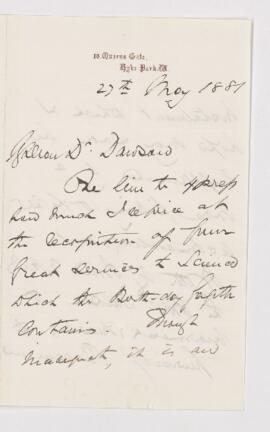 10, Queens Gate,
Hyde Park. W.
27th May 1881
My dear Dr. Dawson
One line to express
how much I rejoice at
the recognition of your
great services to Science
which the Birth-day Gazette
contains. Though
inadequate, it is an